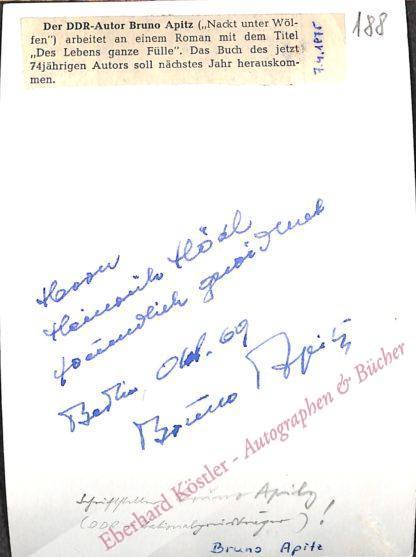 Der DDR-Autor Bruno Apitz („Nackt unter Wöl-
fen") arbeitet an einem Roman mit dem Titel
„Des Lebens ganze Fülle". Das Buch des jetzt
74jährigen Autors soll nächstes Jahr herauskom-
men.
7.4.1975
188
Herrn
Heinrich Hödl
freundlich gewidmet
Berlin, Okt. 69
Bruno Apitz
Eberhard Köstler - Autographen & Bücher
Schriftsteller Bruno Apitz
(DDR-Nationalpreisträger)!
Bruno Apitz